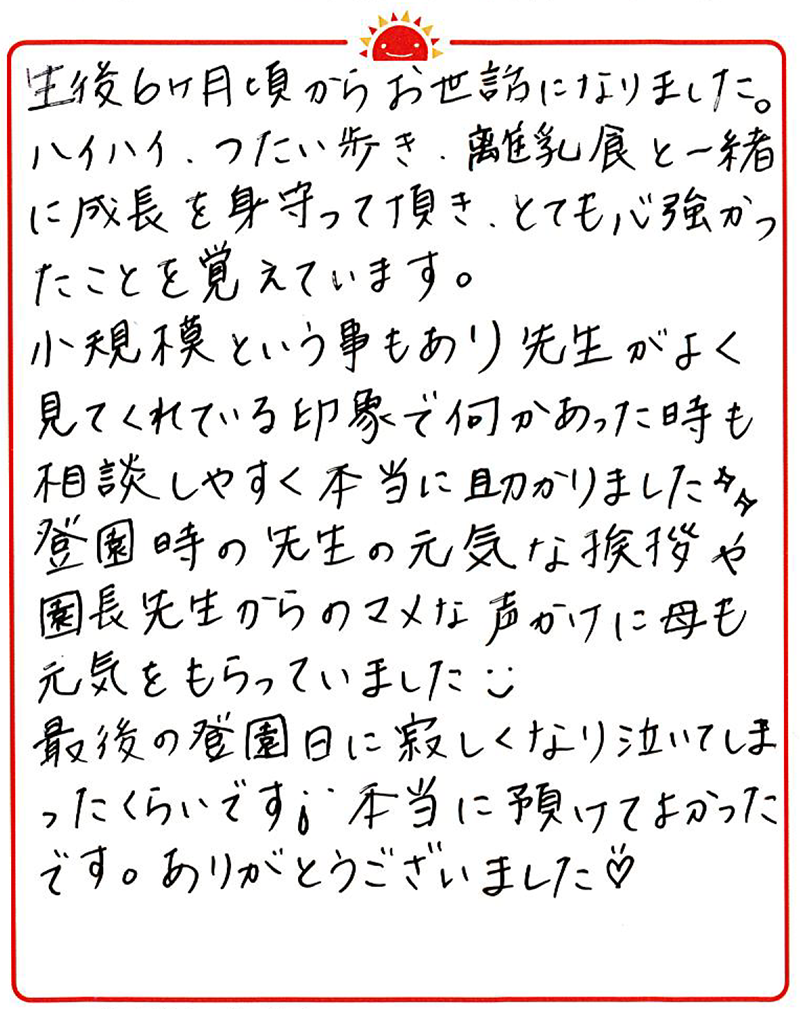 生後6ヶ月頃からお世話になりました。
ハイハイ、つたい歩き、離乳食と一緒
に成長を身守って頂き、とても心強かっ
たことを覚えています。
小規模という事もあり先生がよく
見てくれている印象で何かあった時も
相談しやすく本当に助かりました
登園時の先生の元気な挨拶や
園長先生からのマメな声かけに母も
元気をもらっていました
最後の登園日に寂しくなり泣いてしま
ったくらいです 本当に預けてよかった
です。ありがとうございました♡